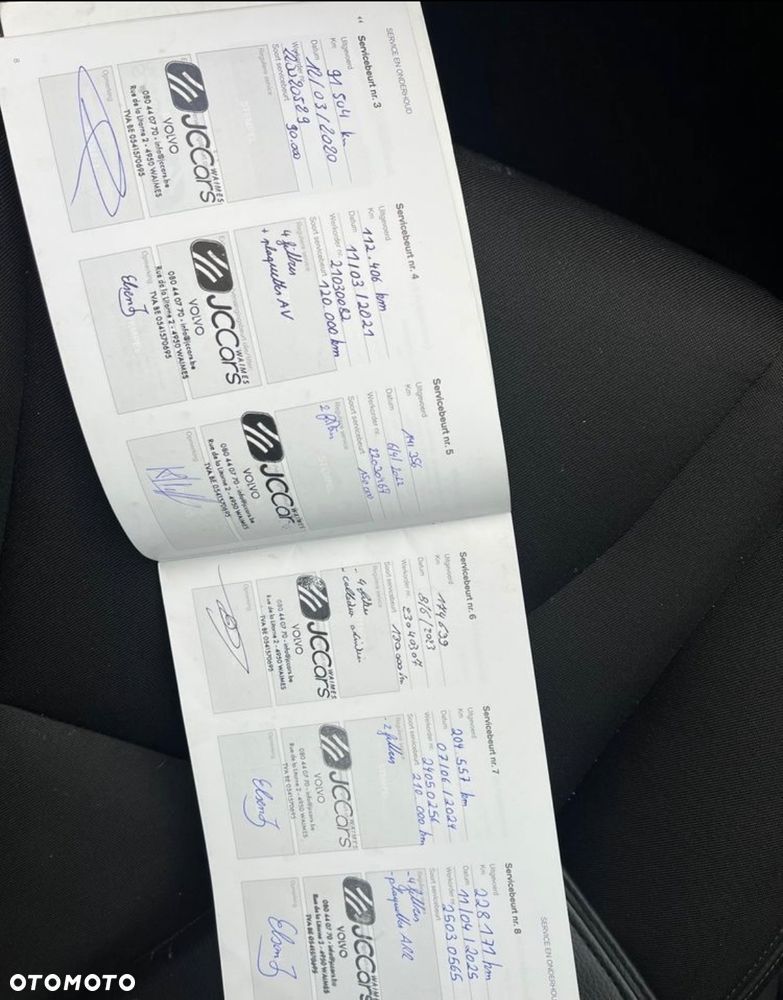 SERVICE EN ONDERHOUD
Servicebeurt nr. 3
Uitgevoerd
Km 91 504 km
Datum 12/03/2020
Werkorder nr.
Soort servicebeurt 90.000
Reguliere service
JCCars
WAIMES
VOLVO
080 44 07 70 - info@jccars.be
Rue de la Litorne 2 - 4950 WAIMES
TVA BE 0541570695
Opmerking
8
Servicebeurt nr. 4
Uitgevoerd
Km 112.406 km
Datum 11/03/2021
Werkorder nr. 21030082
Soort servicebeurt 120.000 km
Reguliere service
4 filtres
+ plaquettes AV
JCCars
WAIMES
VOLVO
080 44 07 70 - info@jccars.be
Rue de la Litorne 2 - 4950 WAIMES
TVA BE 0541570695
Opmerking
Servicebeurt nr. 5
Uitgevoerd
Km 141 356
Datum 6/4/2022
Werkorder nr. 22030969
Soort servicebeurt 150.000
Reguliere service
2 filtres
JCCars
VOLVO
080 44 07 70 - info@jccars.be
Rue de la Litorne 2 - 4950 WAIMES
TVA BE 0541570695
Opmerking
Servicebeurt nr. 6
Uitgevoerd
Km 174 639
Datum 8/6/2023
Werkorder nr. 23040307
Soort servicebeurt
Reguliere service
- 4 filtres
JCCars
WAIMES
VOLVO
080 44 07 70 - info@jccars.be
Rue de la Litorne 2 - 4950 WAIMES
TVA BE 0541570695
Opmerking
Servicebeurt nr. 7
Uitgevoerd
Km 204 557 km
Datum 07/06/2024
Werkorder nr. 24050256
Soort servicebeurt 210 000 km
Reguliere service
- 2 filtres
JCCars
WAIMES
VOLVO
080 44 07 70 - info@jccars.be
Rue de la Litorne 2 - 4950 WAIMES
TVA BE 0541570695
Opmerking
SERVICE EN ONDERHOUD
Servicebeurt nr. 8
Uitgevoerd
Km 228.171 km
Datum 11/04/2025
Werkorder nr. 25030565
Soort servicebeurt
- 4 filtres
- plaquettes AR
JCCars
VOLVO
080 44 07 70 - info@jccars.be
Rue de la Litorne 2 - 4950 WAIMES
TVA BE 0541570695
Opmerking
OTOMOTO